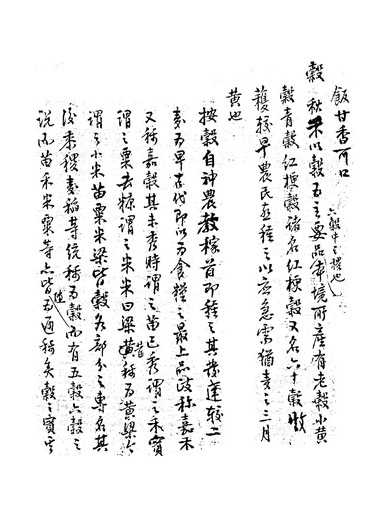 飯甘香可口
穀 秋禾以穀為主要品本境所產有老穀小黃
六穀中之獲也
穀青穀紅梗穀諸名紅梗穀又名六十穀收
穫較早農民亟種之以應急需猶麥之三月
黃也
按穀自神農教稼首即種之其發達較二
麥為早古代即以為食糧之最上品故称嘉禾
又称嘉穀其未秀時謂之苗已秀謂之禾實
謂之粟去糠謂之米米曰粱黃称為黃粱今
謂之小米苗粟米粱皆穀各部分之專名其
後黍稷麥稻等統称為穀而有五穀六穀之
說而苗禾米粟等亦皆為通称矣穀之實